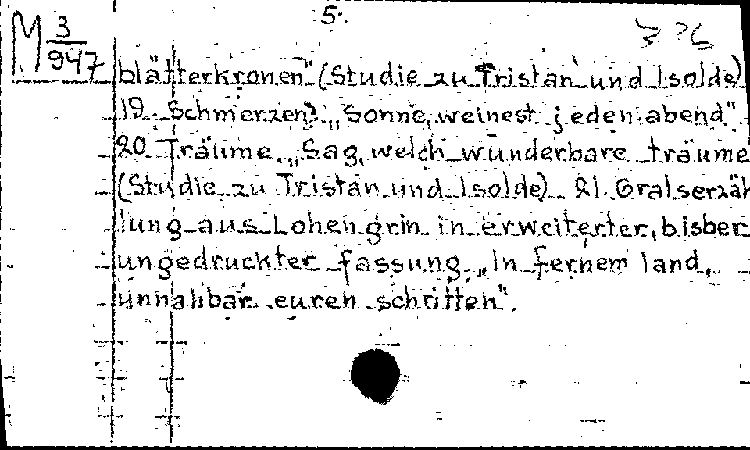 5.
M 3/947
blätterkronen" (Studie zu Tristan und Isolde)
19. Schmerzen: „Sonne, weinest jeden abend"
20. Träume. „Sag, welch wunderbare träume
(Studie zu Tristan und Isolde) 21. Gralserzäh
lung aus Lohengrin in erweiterter, bisher
ungedruckter fassung. „In fernem land,
unnahbar euren schritten".